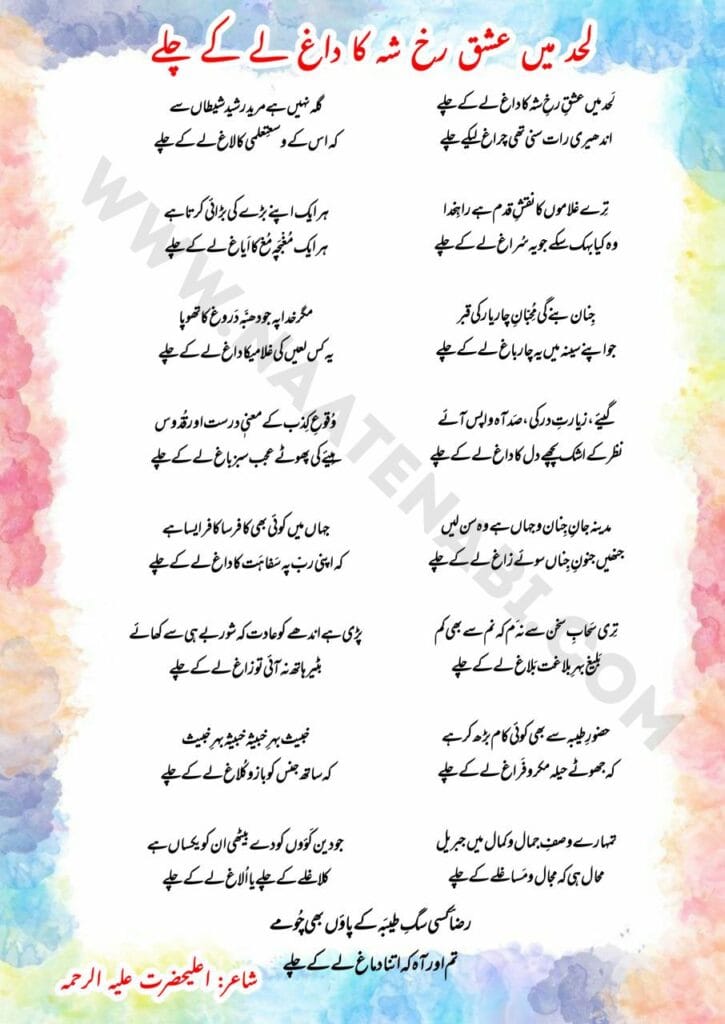 لحد میں عشق رخ شہ کا داغ لے کے چلے
لَحد میں عشقِ رُخِ شہ کا داغ لے کے چلے
اندھیری رات سنی تھی چراغ لیکے چلے
تِرے غلاموں کا نقشِ قدم ہے راہِ خدا
وہ کیا بہک سکے جو یہ سُراغ لے کے چلے
جِنان بنے گی مُحِبّانِ چار یار کی قبر
جو اپنے سینہ میں یہ چار باغ لے کے چلے
گیئے، زیارتِ در کی، صَد آہ واپس آئے
نظر کے اشک پچھے دل کا داغ لے کے چلے
مدینہ جانِ جِنان و جہاں ہے وہ سن لیں
جنھیں جنونِ جِناں سوئے زاغ لے کے چلے
تِری سَحابِ سخن سے نہ نَم کہ نم سے بھی کم
بَلیغ بہرِ بلاغت بَلاغ لے کے چلے
حضورِ طیبہ سے بھی کوئی کام بڑھ کر ہے
کہ جھوٹے حیلہ مکر و فَراغ لے کے چلے
تمہارے وصفِ جمال و کمال میں جبریل
محال ہی کہ مجال و مَساغ لے کے چلے
گلہ نہیں ہے مرید رشید شیطاں سے
کہ اس کے وسعتِ علمی کا لاغ لے کے چلے
ہر ایک اپنے بڑے کی بڑائی کرتا ہے
ہر ایک مُغبچَہ مُغ کا اَیاغ لے کے چلے
مگر خدا پہ جو دھبَّہ دَروغ کا تھوپا
یہ کس لعیں کی غلامیکا داغ لے کے چلے
وُقوعِ کِذب کے معنیٖ درست اور قُدوس
ہیئے کی پھوٹے عجب سبز باغ لے کے چلے
جہاں میں کوئی بھی کافر سا کافر ایسا ہے
کہ اپنی ربّ پہ سَفاہَت کا داغ لے کے چلے
پڑی ہے اندھے کو عادت کہ شوربے ہی سے کھائے
بٹیر ہاتھ نہ آئی تو زاغ لے کے چلے
خبیث بہرِ خبیثہ خبیثہ بہرِ خبیث
کہ ساتھ جنس کو بازو کُلاغ لے کے چلے
جو دین کوّوں کو دے بیٹھی ان کو یکساں ہے
کلاغ لے کے چلے یا اُلاغ لے کے چلے
رضاؔ کسی سگِ طیبَہ کے پاؤں بھی چُومے
تم اور آہ کہ اتنا دماغ لے کے چلے
شاعر: اعلیحضرت علیہ الرحمہ
WWW.NAATENABI.COM